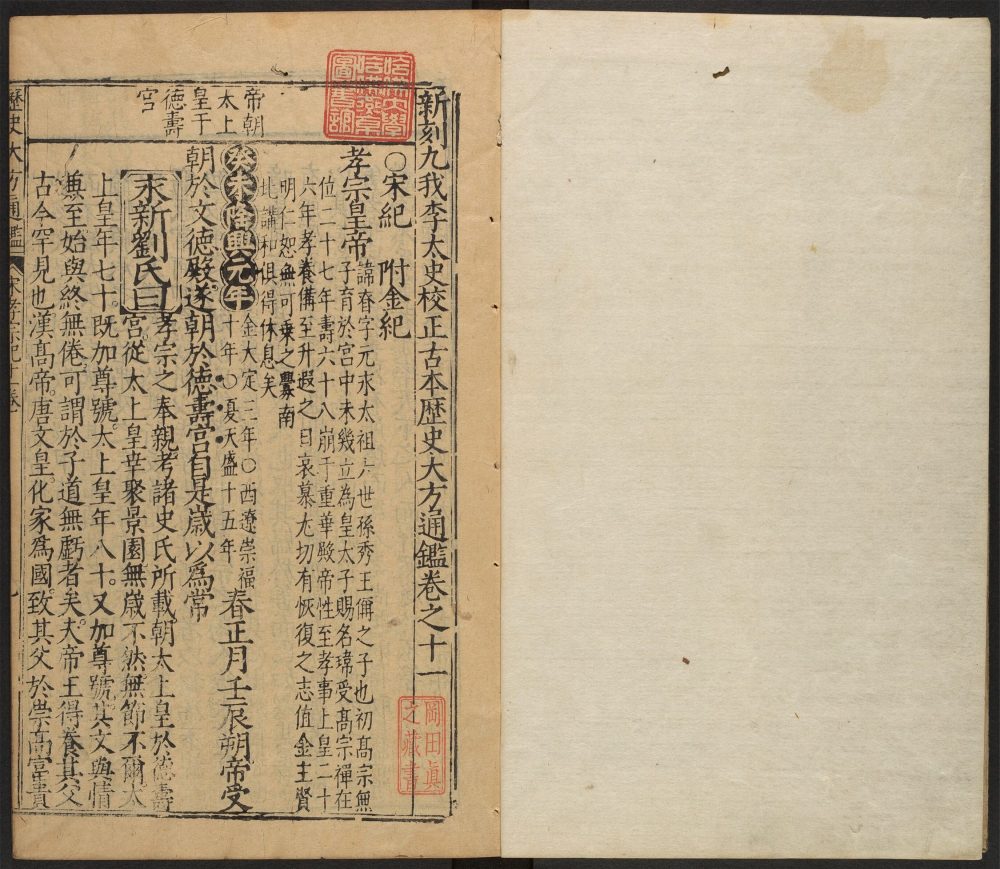 新刻九我李太史校正古本歴史大方通鑑卷之十一
○宋紀 附金紀
孝宗皇帝
諱眘字元永太祖六世孫秀王偁之子也初髙宗無
子育於宮中未幾立為皇太子賜名瑋受髙宗禪在
位二十七年壽六十八崩于重華殿帝性至孝事上皇二十
六年孝養備至升遐之日哀慕尤切有恢復之志值金主賢
明仁恕無可乗之釁南
北講和俱得休息矣
癸未隆興元年
金大定三年○西遼崇福
十年○夏天盛十五年
春正月壬辰朔帝受
朝於文徳殿遂朝於徳壽宮自是歳以爲常
永新劉氏曰
孝宗之奉親考諸史氏所載朝太上皇於徳壽
宮從太上皇幸聚景園無歳不然無節不爾太
上皇年七十既加尊號太上皇年八十又加尊號其文與情
無至始與終無倦可謂於子道無虧者矣夫帝王得養其父
古今罕見也漢髙帝唐文皇化家爲國致其父於崇髙富貴
帝朝
太上
皇于
徳壽
宮
歴史大方通鑑
宋孝宗紀十一卷
哈佛大學
哈佛燕京
圖書館
岡田眞
之藏書